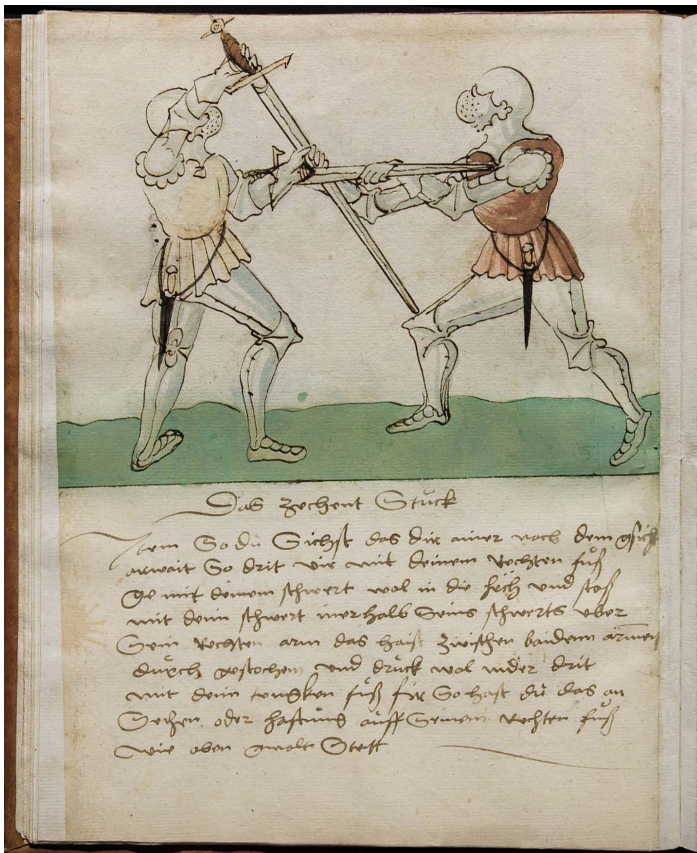 Das zechent Stuck
Item So du Sichst das dir ainer nach dem gsicht
arwait So drit vir mit deinem Rechten fuß
ge mit deinem schwert wol in die hech und stoß
mit deim schwert inerhalb Seins schwerts vber
Sein Rechten arm das haist zwischen baidenn armen
durch gestochenn vnd druck wol nider drit
mit deim lenngken fuß fir So hast du das an
Sechen oder hafftung auff Seinem Rechten fuß
wie oben gmalt Stett